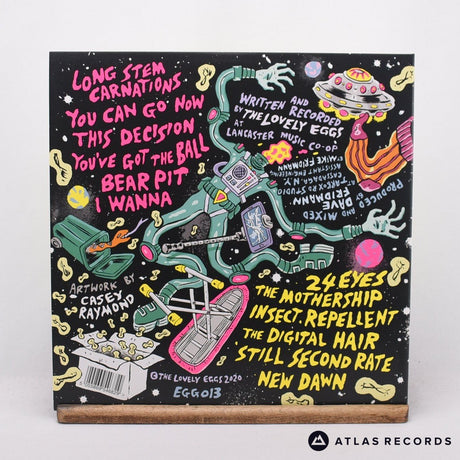 LONG STEM
CARNATIONS
YOU CAN GO NOW
THIS DECISION
YOU'VE GOT THE BALL
BEAR PIT
I WANNA
WRITTEN AND
RECORDED
BY THE LOVELY EGGS
AT
LANCASTER MUSIC CO-OP
PRODUCED
AND MIXED
BY
DAVE
FRIDMANN
AT TARBOX RD STUDIO
CASSADAGA, N.Y.
ASSISTANT ENGINEERING
BY MIKE FRIDMANN
ARTWORK BY
CASEY
RAYMOND
24 EYES
THE MOTHERSHIP
INSECT REPELLENT
THE DIGITAL HAIR
STILL SECOND RATE
NEW DAWN
© THE LOVELY EGGS 2020
EGG013
ATLAS RECORDS